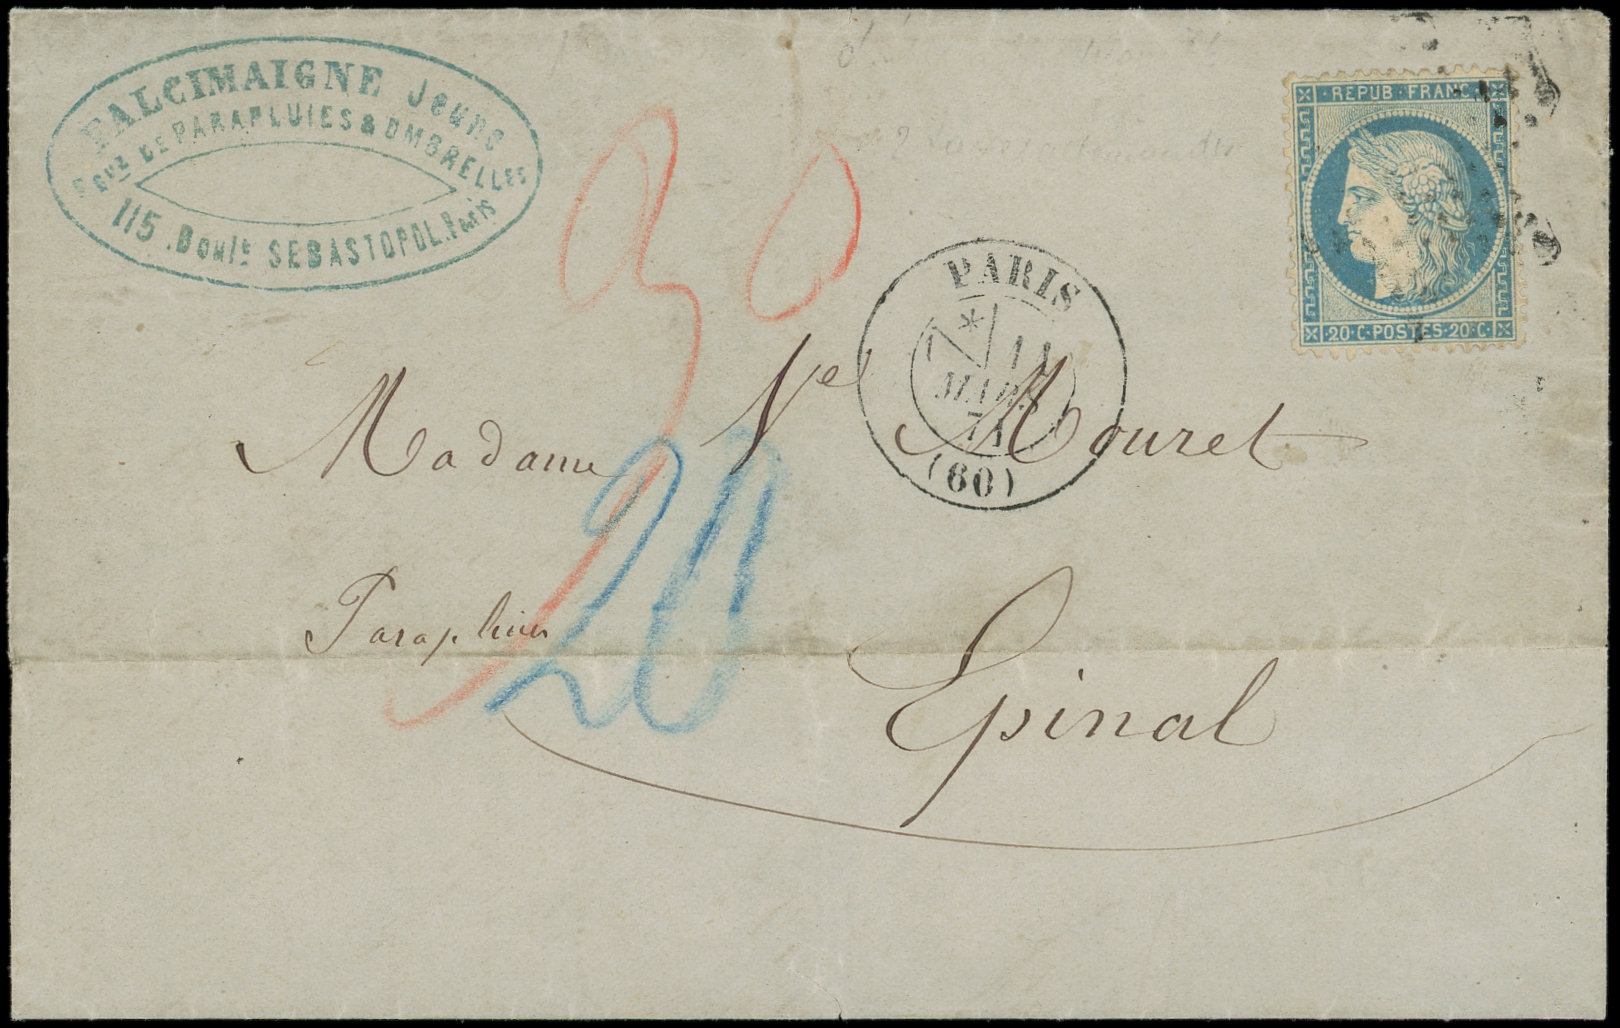 FALCIMAIGNE Jeune
DE PARAPLUIES & OMBRELLES
115. Boult. SEBASTOPOL. Paris
REPUB·FRANC
20·C·POSTES·20·C·
30
PARIS
11
MARS
71
(60)
Madame Ve Mouret
20
Epinal